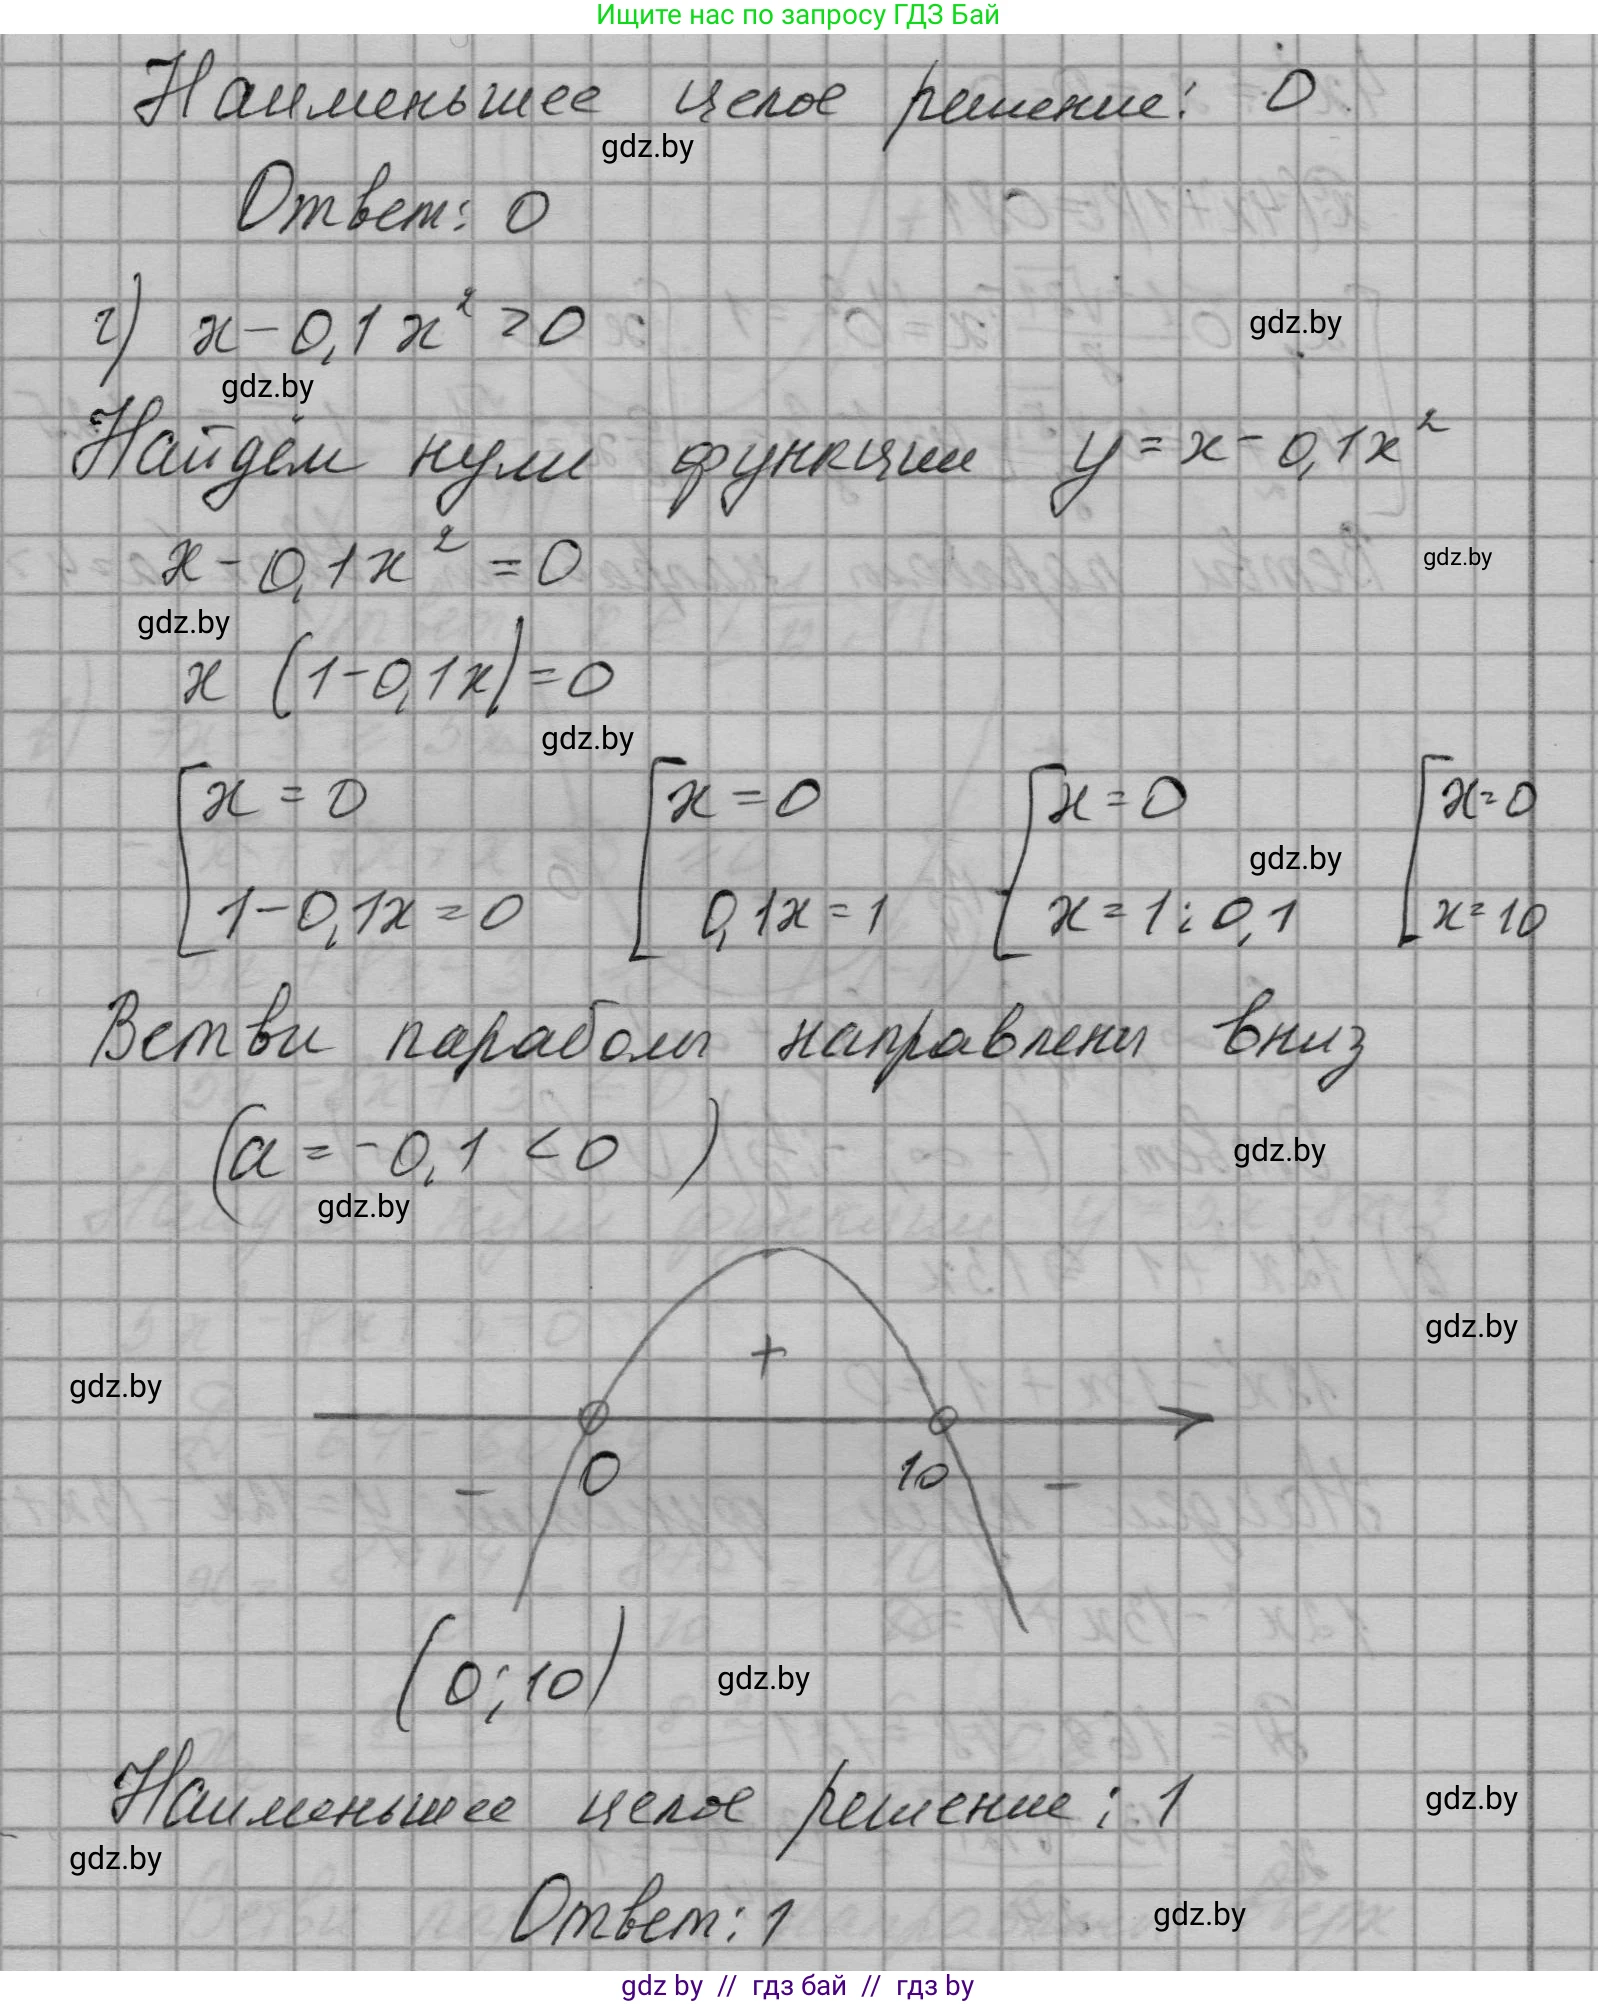 Ищите нас по запросу ГДЗ Бай
Наименьшее целое решение: 0
gdz.by
Ответ: 0
г) x - 0,1x² > 0
gdz.by
gdz.by
Найдём нули функции y = x - 0,1x²
x - 0,1x² = 0
gdz.by
gdz.by
x (1 - 0,1x) = 0
gdz.by
[x = 0 [x = 0 [x = 0 [x = 0
gdz.by
1 - 0,1x = 0 0,1x = 1 x = 1 : 0,1 x = 10
Ветви параболы направлены вниз
(a = -0,1 < 0 )
gdz.by
gdz.by
gdz.by
+
gdz.by
- 0 10 -
(0; 10)
gdz.by
Наименьшее целое решение: 1
gdz.by
gdz.by
Ответ: 1
gdz.by
gdz by // гдз бай // гдз by